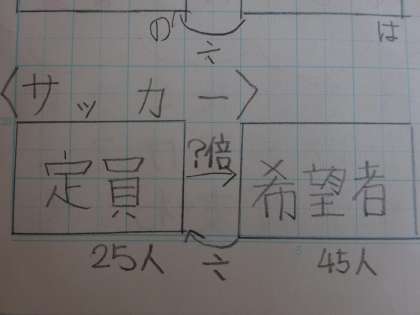 の は
÷
〈サッカー〉
定員 ?倍 希望者
25人 ÷ 45人